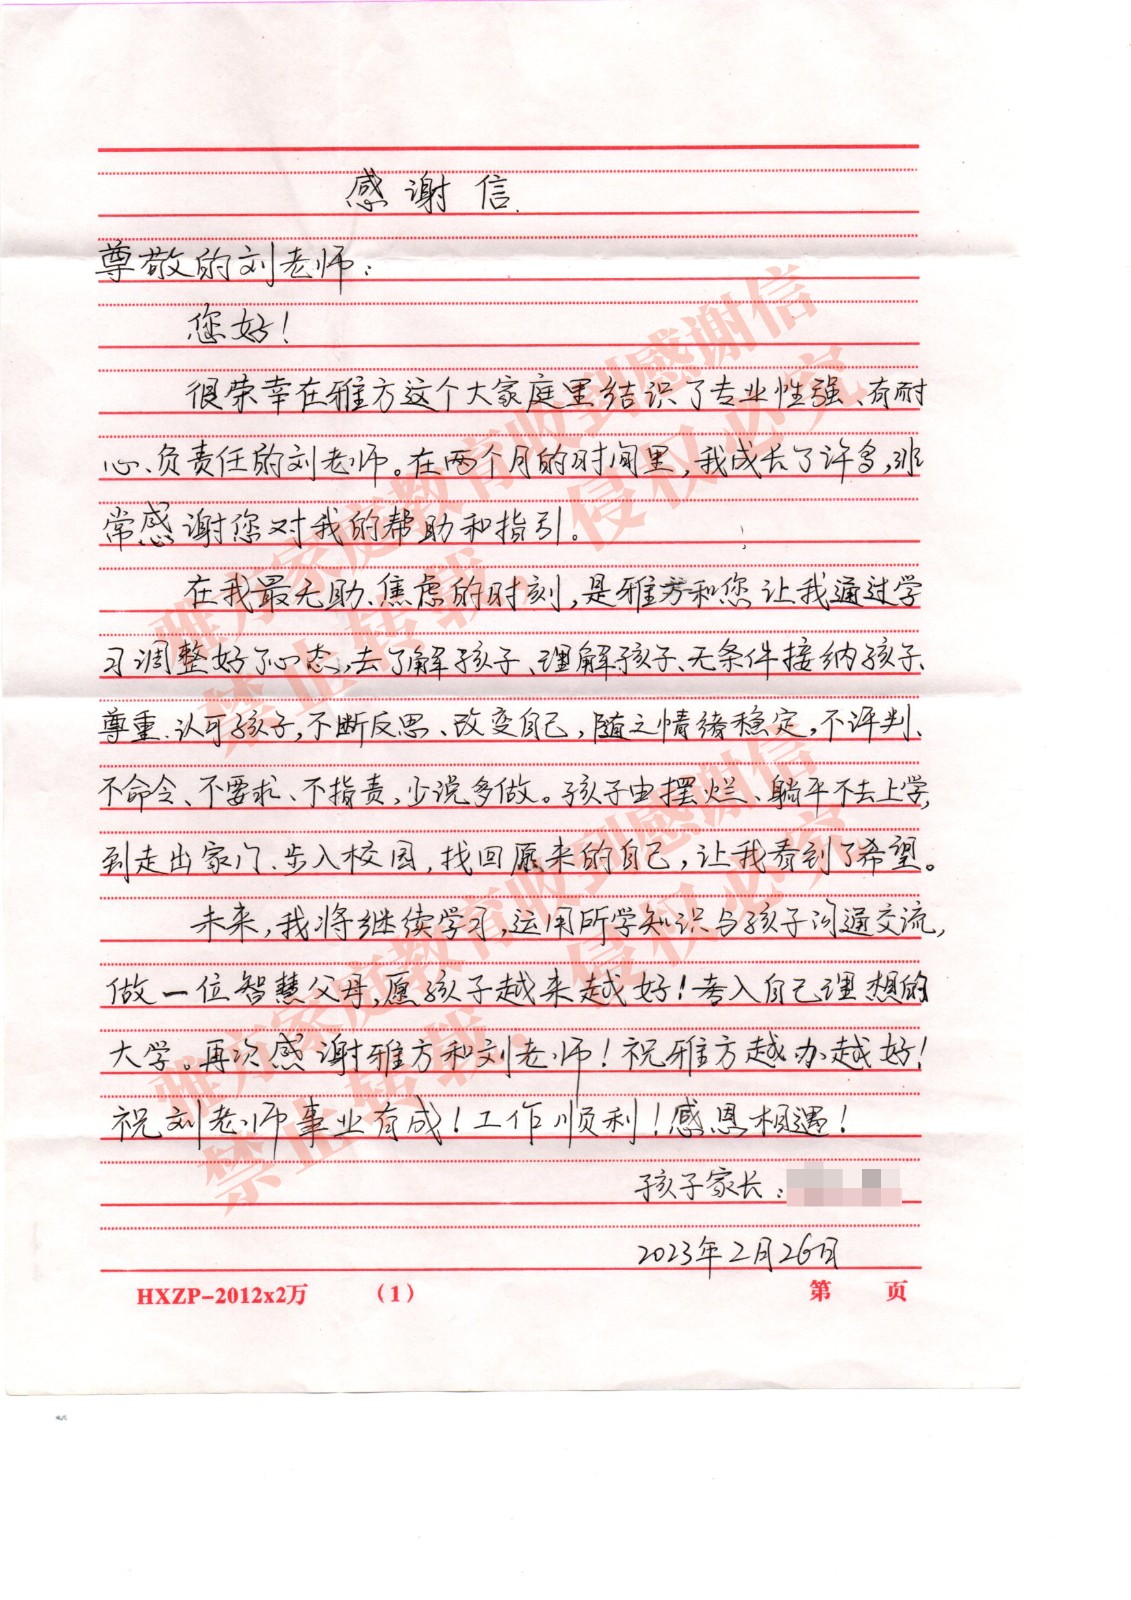 感谢信.
尊敬的刘老师:
您好!
很荣幸在雅方这个大家庭里结识了专业性强、有耐
心、负责任的刘老师。在两个月的时间里,我成长了许多,非
常感谢您对我的帮助和指引。
在我最无助、焦虑的时刻,是雅芳和您让我通过学
习调整好了心态,去了解孩子、理解孩子、无条件接纳孩子、
尊重、认可孩子,不断反思、改变自己,随之情绪稳定,不评判、
不命令、不要求、不指责,少说多做。孩子由摆烂、躺平不去上学,
到走出家门、步入校园,找回原来的自己,让我看到了希望。
未来,我将继续学习,运用所学知识与孩子沟通交流,
做一位智慧父母,愿孩子越来越好!考入自己理想的
大学。再次感谢雅方和刘老师!祝雅方越办越好!
祝刘老师事业有成!工作顺利!感恩相遇!
孩子家长:
2023年2月26日
HXZP-2012x2万 (1) 第 页
雅方家庭教育收到感谢信
禁止转载,侵权必究
雅方家庭教育收到感谢信
禁止转载,侵权必究